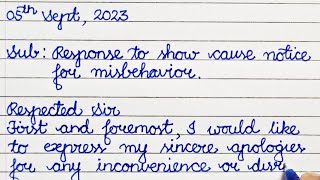 05th Sept, 2023
Sub: Response to show cause notice
for misbehavior.
Respected Sir
First and foremost, I would like
to express my sincere apologies
for any inconvenience or